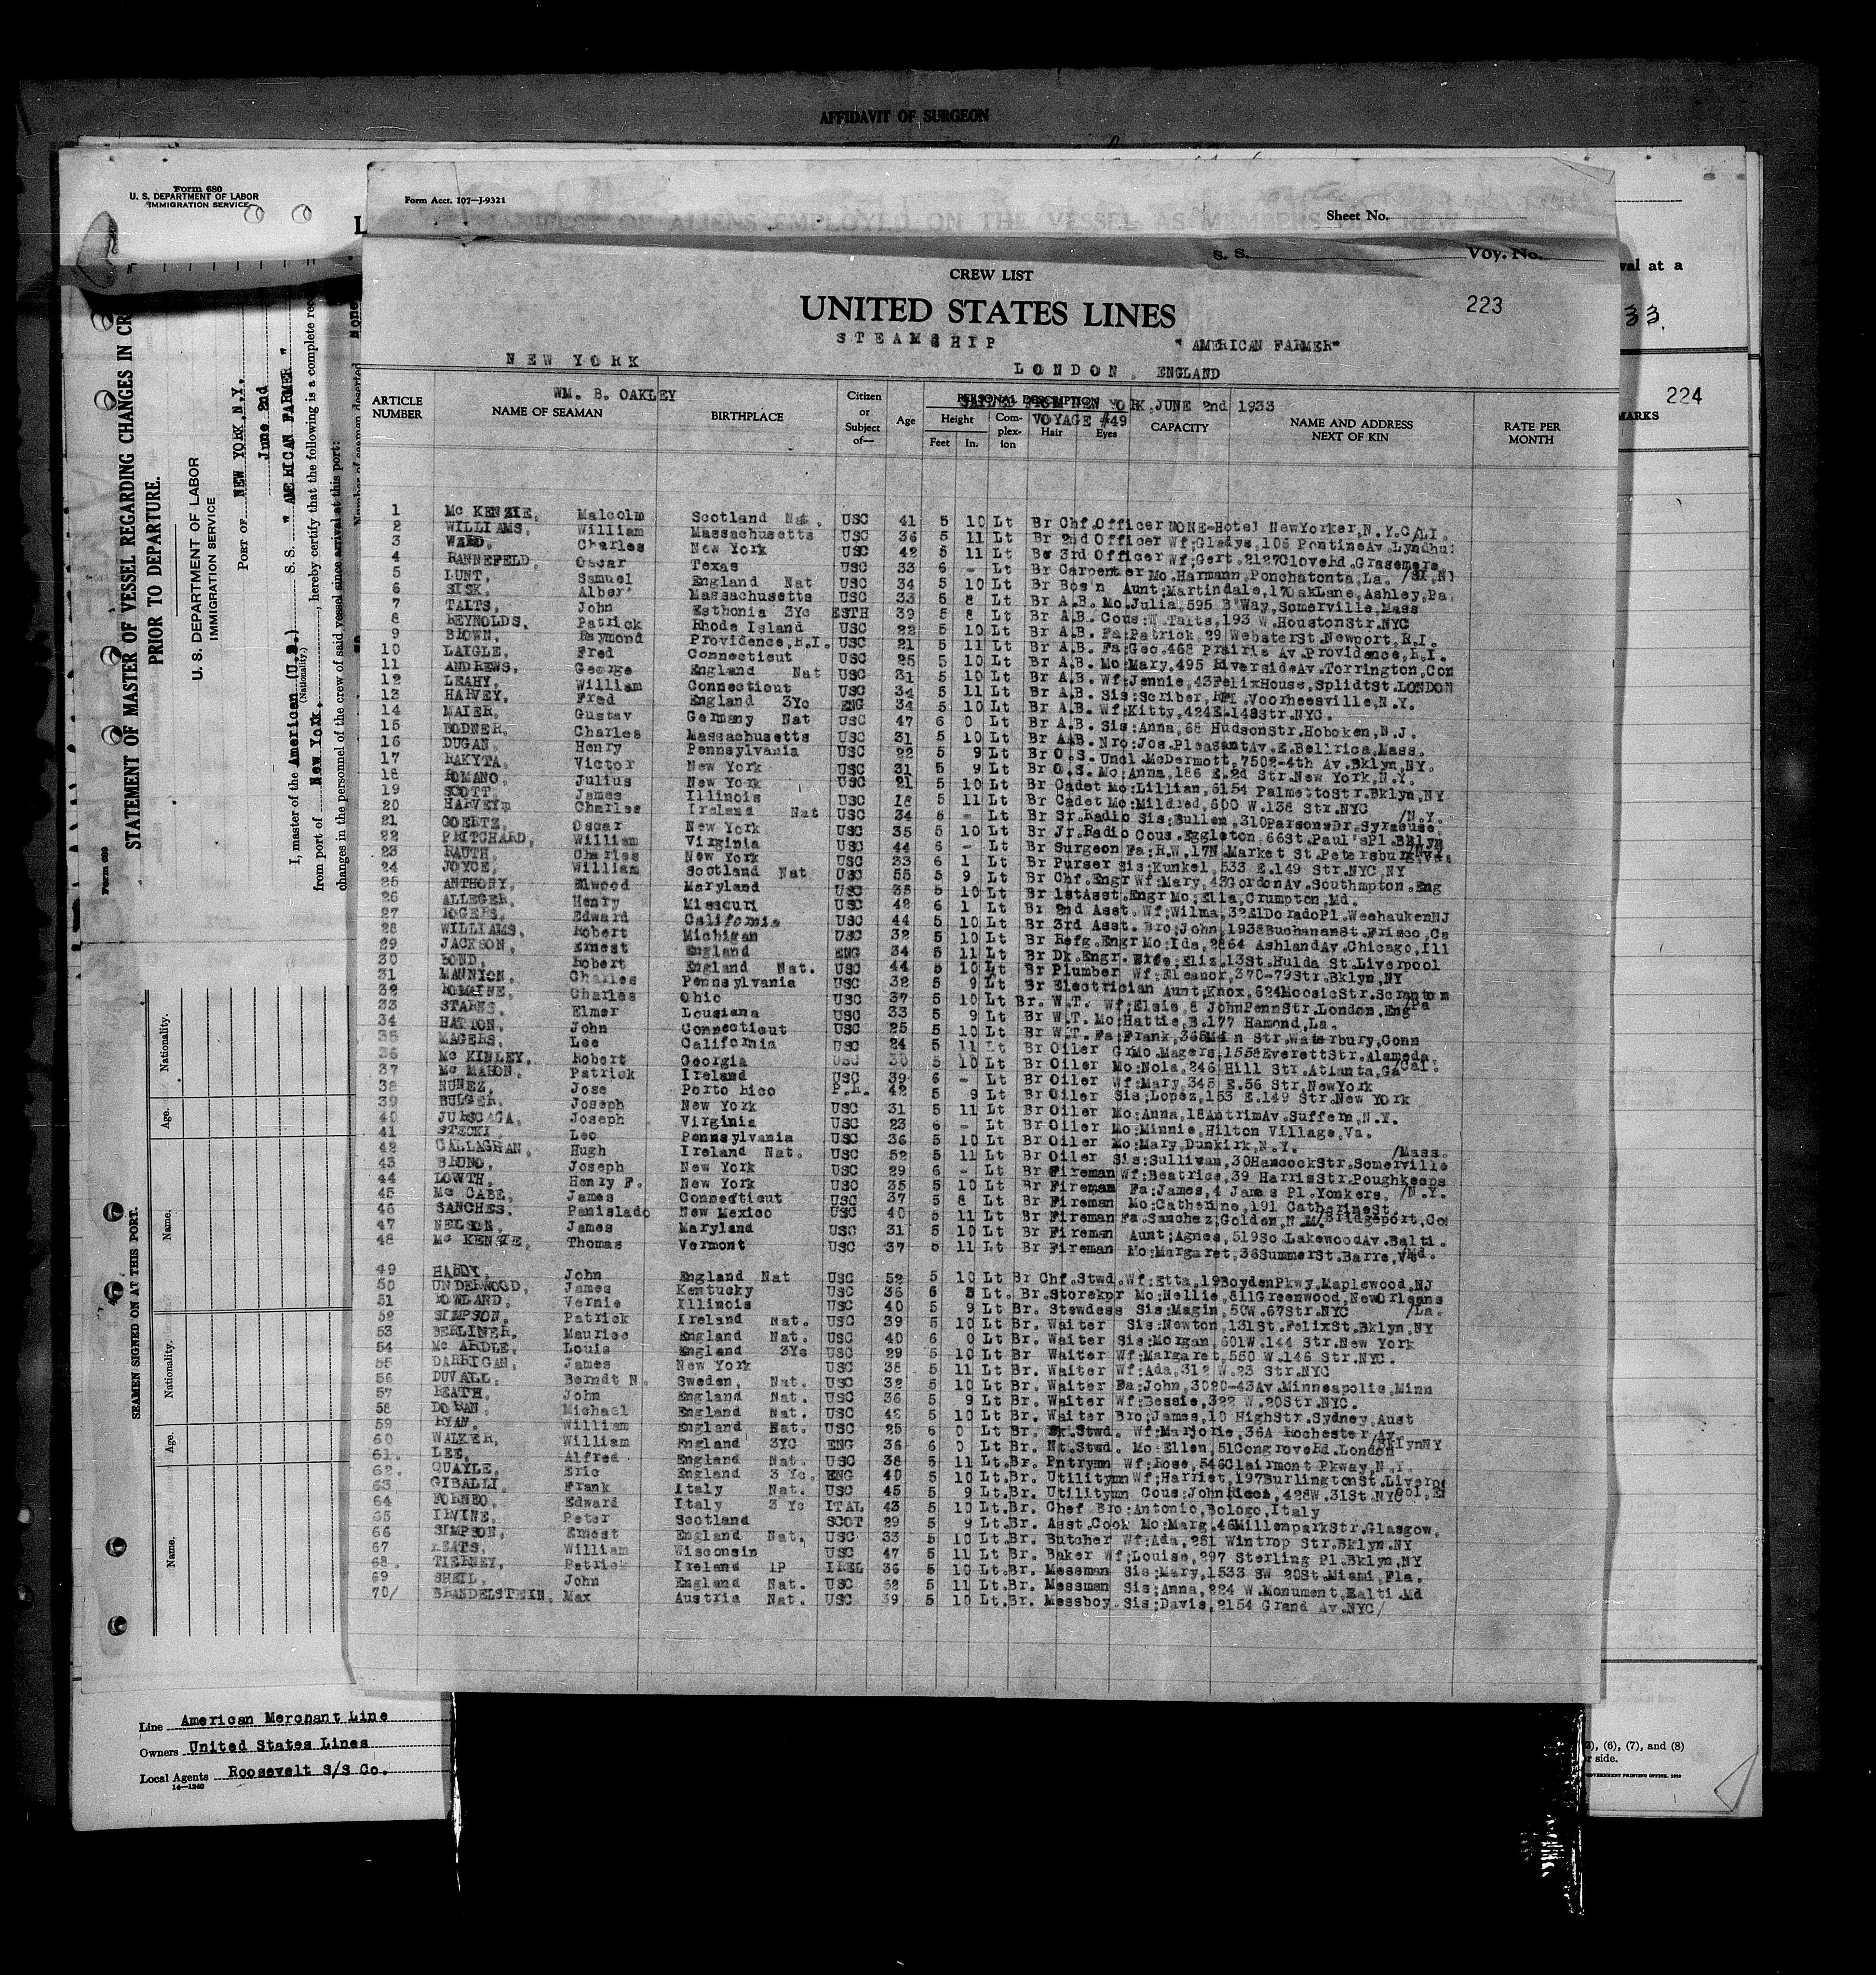 AFFIDAVIT OF SURGEON
Form 680
U. S. DEPARTMENT OF LABOR
IMMIGRATION SERVICE
Form Acct. 107—J-9321
Sheet No.
MANIFEST OF ALIENS EMPLOYED ON THE VESSEL AS MEMBERS OF CREW
S. S. Voy. No.
CREW LIST
UNITED STATES LINES
223
STEAMSHIP " AMERICAN FARMER"
NEW YORK LONDON, ENGLAND
WM. B. OAKLEY
SAILED FROM NEW YORK, JUNE 2nd 1933
VOYAGE #49
ARTICLE NUMBER NAME OF SEAMAN BIRTHPLACE Citizen or Subject of— Age PERSONAL DESCRIPTION Height Feet In. Complexion Hair Eyes CAPACITY NAME AND ADDRESS NEXT OF KIN RATE PER MONTH
1 Mc KENZIE, Malcolm Scotland Nat. USC 41 5 10 Lt Br Chf.Officer NONE-Hotel NewYorker,N.Y.C
2 WILLIAMS, William Massachusetts USC 36 5 11 Lt Br 2nd Officer Wf:Gladys,106 PontineAv.Lyndhu
3 WARD, Charles New York USC 42 5 11 Lt Br 3rd Officer Wf:Gert.2127CloveRd.Grasemere
4 RANNEFELD, Oscar Texas USC 33 6 - Lt Br Carpenter Mo.Harmann,Ponchatonta,La.
5 LUNT, Samuel England Nat USC 34 5 10 Lt Br Bos'n Aunt:Martindale,17OakLane,Ashley,Pa.
6 SISK, Alber' Massachusetts USC 33 5 8 Lt Br A.B. Mo.Julia,595 B'Way,Somerville,Mass
7 TALTS, John Esthonia 3Yc ESTH 39 5 8 Lt Br A.B. Cous:W.Talts,193 W.HoustonStr.NYC
8 REYNOLDS, Patrick Rhode Island USC 22 5 10 Lt Br A.B. Fa:Patrick,29 WebsterSt.Newport,R.I.
9 BROWN, Raymond Providence,R.I. USC 21 5 11 Lt Br A.B. Fa:Geo.468 Prairie Av.Providence,R.I.
10 LAIGLE, Fred Connecticut USC 25 5 10 Lt Br A.B. Mo:Mary,495 RiversideAv.Torrington,Con
11 ANDREWS, George England Nat USC 31 5 10 Lt Br A.B. Wf:Jennie,43FelixHouse,SplidtSt.LONDON
12 LEAHY, William Connecticut USC 34 5 11 Lt Br A.B. Sis:Scriber, Voorheesville,N.Y.
13 HARVEY, Fred England 3Yc ENG 34 5 10 Lt Br A.B. Wf:Kitty,424E.149Str.NYC.
14 MAIER, Gustav Germany Nat USC 47 6 0 Lt Br A.B. Sis:Anna,68 HudsonStr.Hoboken,N.J.
15 BODNER, Charles Massachusetts USC 31 5 10 Lt Br A.B. Nro:Jos.PleasantAv.E.Bellrica,Mass.
16 DUGAN, Henry Pennsylvania USC 22 5 9 Lt Br O.S. Uncl.McDermott,7502-4th Av.Bklyn,NY.
17 RAKYTA, Victor New York USC 31 5 9 Lt Br O.S. Mo:Anna,186 E.2d Str.New York,N.Y.
18 ROMANO, Julius New York USC 21 5 10 Lt Br Cadet Mo:Lillian,6154 PalmettoStr.Bklyn,NY
19 SCOTT, James Illinois USC 18 5 11 Lt Br Cadet Mo:Mildred,600 W.138 Str.NYC
20 HARVEYm Charles Ireland Nat USC 34 6 - Lt Br Sr.Radio Sis:Bullen,310ParsonsDr.Syracuse, /N.Y.
21 GOERTZ, Oscar New York USC 35 5 10 Lt Br Jr.Radio Cous.Eggleton,66St.Paul'sPl.Bklyn
22 PRITCHARD, William Virginia USC 44 6 - Lt Br Surgeon Fa:R.W.17N.Market St.Petersburg,Va.
23 RAUTH, Charles New York USC 33 6 1 Lt Br Purser Sis:Kunkel,533 E.149 Str.NYC,NY
24 JOYCE, William Scotland Nat USC 55 5 9 Lt Br Chf.Engr Wf:Mary,43GordonAv.Southmpton.Eng
25 ANTHONY, Elwood Maryland USC 35 5 10 Lt Br 1stAsst.Engr Mo:Ella,Crumpton,Md.
26 ALLEGER, Henry Missouri USC 42 6 1 Lt Br 2nd Asst. Wf:Wilma,32ElDoradoPl.WeehaukenNJ
27 ROGERS, Edward California USC 44 5 10 Lt Br 3rd Asst. Bro:John,1938BuchananSt.Frisco,Ca
28 WILLIAMS, Robert Michigan USC 32 5 10 Lt Br Refg.Engr Mo:Ida,2864 AshlandAv.Chicago,Ill
29 JACKSON, Ernest England ENG 34 5 11 Lt Br Dk.Engr. Wife:Eliz.13St.Hulda St.Liverpool
30 BOND, Robert England Nat. USC 44 5 10 Lt Br Plumber Wf:Eleanor,370-79Str.Bklyn,NY
31 MANNION, Charles Pennsylvania USC 32 5 9 Lt Br Electrician Aunt:Knox,624MoosicStr.Scranton /Pa
32 ROMAINE, Charles Ohio USC 37 5 10 Lt Br. W.T. Wf:Elsie,8 JohnPennStr.London,Eng
33 STARNS, Elmer Lousiana USC 33 5 9 Lt Br W.T. Mo:Hattie,B.177 Hamond,La.
34 HATTON, John Connecticut USC 25 5 10 Lt Br W.T. Fa:Frank,365Main Str.Waterbury,Conn
35 MAGERS, Lee California USC 24 5 11 Lt Br Oiler GrMo.Magers,1558EverettStr.Alameda, Cal.
36 Mc KINLEY, Robert Georgia USC 30 5 10 Lt Br Oiler Mo:Nola,246 Hill Str.Atlanta,Ga
37 Mc MAHON, Patrick Ireland USC 39 6 - Lt Br Oiler Wf:Mary,345 E.56 Str,NewYork
38 NUNEZ, Jose Porto Rico P.R. 42 5 9 Lt Br Oiler Sis:Lopez,153 E.149 Str.New York
39 BULGER, Joseph New York USC 31 5 11 Lt Br Oiler Mo:Anna,18AntrimAv.Suffern,N.Y.
40 JURSCAGA, Joseph Virginia USC 23 6 - Lt Br Oiler Mo:Minnie,Hilton Village,Va.
41 STECKI, Leo Pennsylvania USC 36 5 10 Lt Br Oiler Mo:Mary,Dunkirk,N.Y.
42 CALLAGHAN, Hugh Ireland Nat. USC 52 5 11 Lt Br Oiler Sis:Sullivan,30HancockStr.Somerville /Mass.
43 BRUNO, Joseph New York USC 29 6 - Lt Br Fireman Wf:Beatrice,39 HarrisStr.Poughkeeps /N.Y.
44 LOWTH, Henry F. New York USC 35 5 10 Lt Br Fireman Fa:James,4 James Pl.Yonkers,
45 Mc CABE, James Connecticut USC 37 5 8 Lt Br Fireman Mo:Catherine,191 CatherineSt. Bridgeport,Co
46 SANCHES, Panislado New Mexico USC 40 5 11 Lt Br Fireman Fa.Sanchez,Golden,N.M.
47 NELSON, James Maryland USC 31 5 10 Lt Br Fireman Aunt:Agnes,519So.LakewoodAv.Balti. /Md.
48 Mc KENZIE, Thomas Vermont USC 37 5 11 Lt Br Fireman Mo:Margaret,36SummerSt.Barre,Vt
49 HARDY, John England Nat USC 52 5 10 Lt Br Chf.Stwd.Wf:Etta,19BoydenPkwy,Maplewood,NJ
50 UNDERWOOD, James Kentucky USC 36 6 Lt. Br.Storekpr Mo:Nellie,811Greenwood,NewOrleans /La.
51 ROWLAND, Vernie Illinois USC 40 5 9 Lt Br. Stewdess Sis:Magin,50W.67Str.NYC
52 SIMPSON, Patrick Ireland Nat. USC 39 5 10 Lt Br. Waiter Sis:Newton,131St.FelixSt.Bklyn,NY
53 BERLINER, Maurice England Nat. USC 40 6 0 Lt Br. Waiter Sis:Morgan,601W.144 Str.New York
54 Mc ARDLE, Louis England 3Yc USC 29 5 10 Lt Br. Waiter Wf:Margaret,550 W.146 Str.NYC.
55 DARRIGAN, James New York USC 38 5 11 Lt Br. Waiter Wf:Ada,312 W.23 Str.NYC
56 DUVALL, Berndt N. Sweden, Nat. USC 32 5 10 Lt Br. Waiter Fa:John,3020-43Av.Minneapolis,Minn
57 HEATH, John England Nat. USC 36 5 9 Lt Br. Waiter Wf:Bessie,322 W.20Str.NYC.
58 DORAN, Michael England Nat. USC 42 5 10 Lt Br. Waiter Bro:James,10 HighStr.Sydney,Aust
59 RYAN, William England Nat. USC 25 6 0 Lt Br. Bk.Stwd. Wf:Marjorie,36A Rochester Av. /BklynNY
60 WALKER, William England 3YC ENG 36 6 0 Lt Br. Nt.Stwd. Mo Ellen,51CongroveRd.London
61. LEE, Alfred England Nat. USC 38 5 11 Lt.Br. Pntrymn Wf:Rose,546Clairmont Pkway,N.Y.
62. QUAYLE, Eric England 3 Yc. ENG 40 5 10 Lt.Br. Utilitymn Wf:Harriet,197BurlingtonSt.Liverp
63 GIBALLI, Frank Italy Nat. USC 45 5 9 Lt.Br. Utilitymn Cous:John Ricca,428W.31St.NYC
64 FORNEO, Edward Italy 3 Yc ITAL 43 5 10 Lt.Br. Chef Bro:Antonio,Bologo,Italy
65 IRVINE, Peter Scotland SCOT 29 5 9 Lt.Br. Asst.Cook Mo:Marg.46MillenparkStr.Glasgow,
66 SIMPSON, Ernest England Nat. USC 33 5 10 Lt.Br. Butcher Wf:Ada,251 Wintrop Str.Bklyn.NY
67 KEATS, William Wisconsin USC 47 5 11 Lt Br. Baker Wf:Louise,297 Sterling Pl.Bklyn,NY
68. TIERNEY, Patrick Ireland 1P IREL 36 5 10 Lt.Br. Messman Sis:Mary,1533 SW 20St.Miami,Fla.
69 SHEIL, John England Nat. USC 52 5 11 Lt.Br. Messman Sis:Anna,224 W.Monument,Balti.Md
70/ BRANDELSTEIN, Max Austria Nat. USC 39 5 10 Lt.Br. Messboy.Sis:Davis,2154 Grand Av.NYC/
Form 680
STATEMENT OF MASTER OF VESSEL REGARDING CHANGES IN CR
PRIOR TO DEPARTURE.
U. S. DEPARTMENT OF LABOR
IMMIGRATION SERVICE
PORT OF NEW YORK, N.Y.
June 2nd
I, master of the American (U.S.) S. S. " AMERICAN FARMER "
(Nationality.)
from port of New York, hereby certify that the following is a complete rec
changes in the personnel of the crew of said vessel since arrival at this port:
Number of seamen deserted None
SEAMEN SIGNED ON AT THIS PORT.
Name. Nationality. Age. Name. Age. Nationality.
Line American Merchant Line
Owners United States Lines
Local Agents Roosevelt S/S Co.
14—1240
val at a
33.
224
MARKS
), (6), (7), and (8)
r side.
GOVERNMENT PRINTING OFFICE